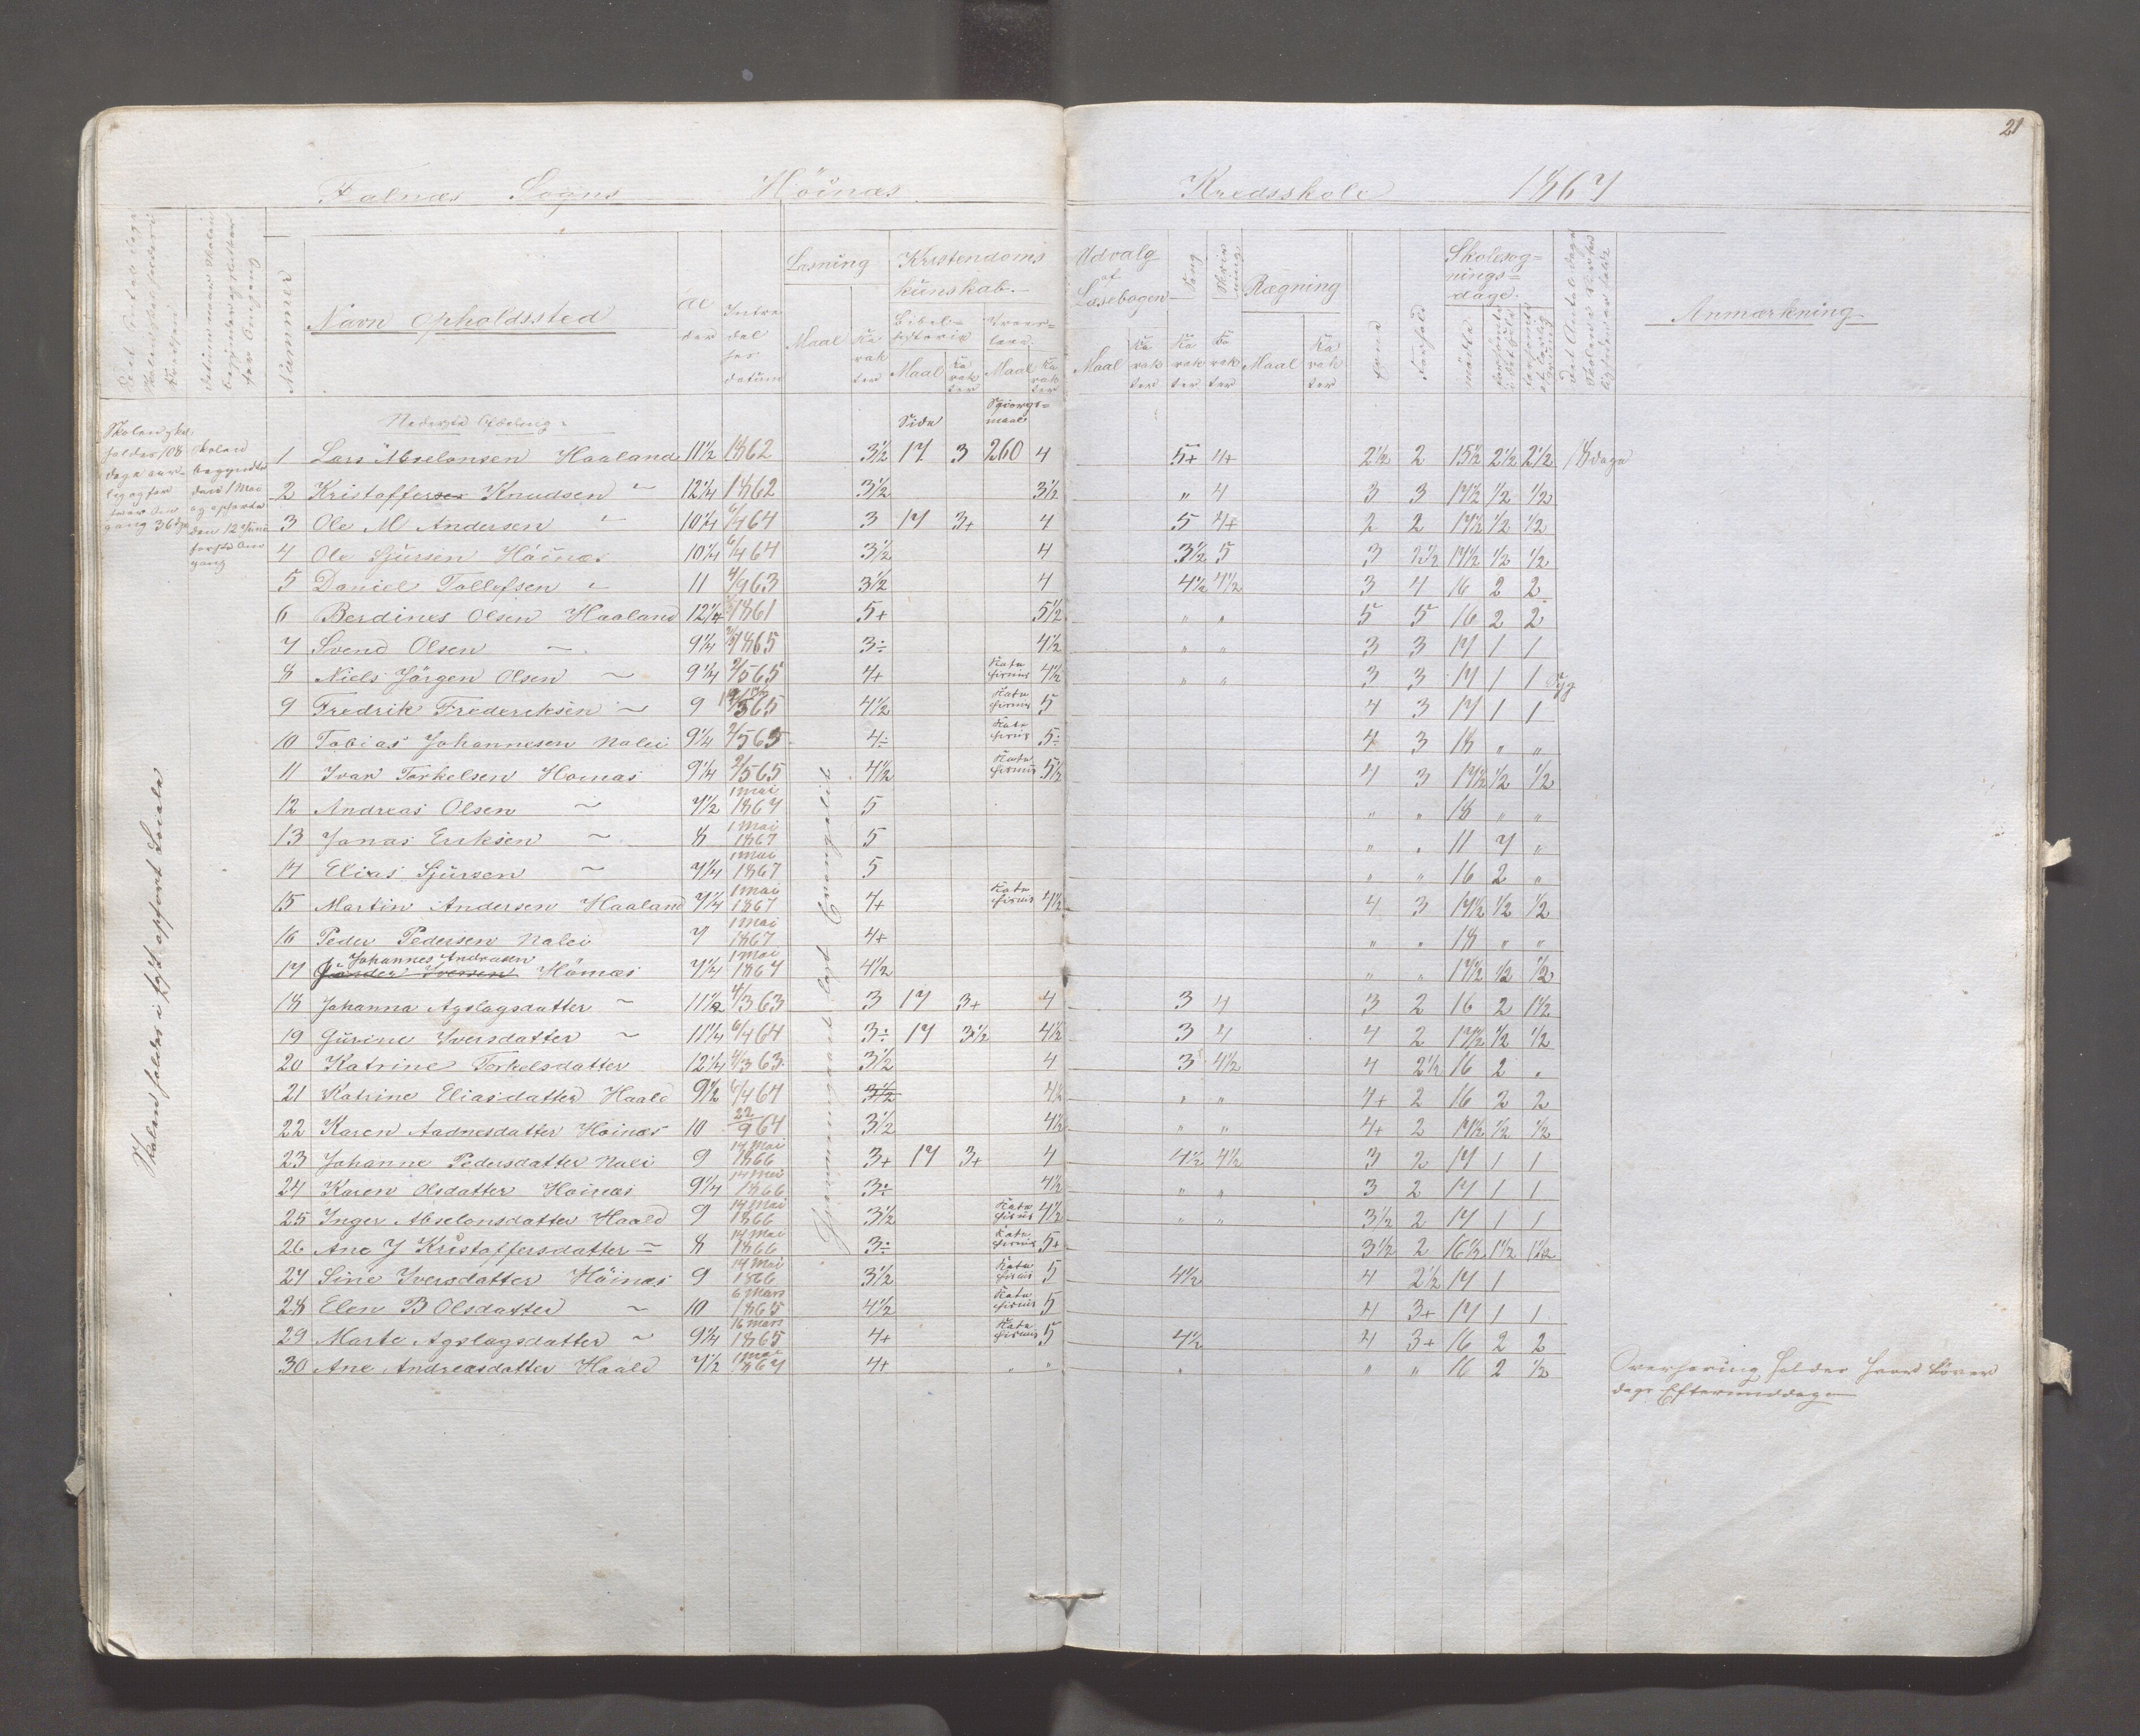 21
Falnæs Sogns Höinæs Kredsskole 1867
Nummer
Navn Opholdssted
Al der
Intræ del ses datum
Læsning
Kristendoms kunskab
Udvalg af Læsebogen
Sang
Skriv ning
Rægning
Evne
Forhold
Skolesøg= nings= dage
Anmærkning
Maal Ka rak ter
Bibel= historie
Troes= lære
Maal Ka rak ter Maal Ka rak ter
Maal Ka rak ter Ka rak ter Ka rak ter Maal Ka rak ter
mødte
Nederste Afdeling
Side
Spørgs= maal
1 Lars Abselonsen Haaland 11½ 1862 3½ 17 3 260 4 5+ 4+ 2½ 2 15½ 2½ 2½ 18 dage
2 Kristoffer Knudsen " 12¼ 1862 3½ 3½ " 4 3 3 17½ ½ ½
3 Ole M Andersen " 10¼ 6/4 64 3 17 3+ 4 5 4+ 2 2 17½ ½ ½
4 Ole Sjursen Höinæs 10¼ 6/4 64 3½ 4 3½ 5 3 2½ 17½ ½ ½
5 Daniel Tollefsen " 11 4/9 63 3½ 4 4½ 4½ 3 4 16 2 2
6 Berdines Olsen Haaland 12¼ 1861 5+ 5½ " " 5 5 16 2 2
7 Svend Olsen — 9¼ 1865 3÷ 4½ " " 3 3 17 1 1
8 Niels Jörgen Olsen ~ 9¼ 2/5 65 4+ Kate chismus 4½ " " 3 3 17 1 1 Syg
9 Fredrik Frederiksen ~ 9 65 4½ Kate chismus 5 4 3 17 1 1
10 Tobias Johannesen Nalei 9¼ 2/5 65 4÷ Kate chismus 5÷ 4 3 18 " "
11 Ivar Torkelsen Homæs 9¼ 2/5 65 4½ Kate chismus 5½ 4 3 17½ ½ ½
12 Andreas Olsen ~ 7½ 1 Mai 1867 5 " " 18 " "
13 Jonas Eriksen ~ 8 1 Mai 1867 5 " " 11 7 "
14 Elias Sjursen ~ 7¼ 1 Mai 1867 5 " " 16 2 "
15 Martin Andersen Haaland 7¼ 1 Mai 1867 4+ Kate chismus 4½ 4 3 17½ ½ ½
16 Peder Pedersen Nalei 7 1 Mai 1867 4+ " " 18 " "
17 Johannes Andreasen Hömæs 7¼ 1 Mai 1867 4½ " " 17½ ½ ½
18 Johanna Agslagsdatter ~ 11½ 4/3 63 3 17 3+ 4 3 4 3 2 16 2 1½
19 Gurine Iversdatter ~ 11¼ 6/4 64 3÷ 17 3½ 4½ 3 4 4 2 17½ ½ ½
20 Katrine Torkelsdatter 12¼ 4/3 63 3½ 4 3 4½ 4 2½ 16 2 "
21 Katrine Eliasdatter Haald 9½ 6/4 64 3½ 4½ " " 4+ 2 16 2 2
22 Karen Aadnesdatter Höinæs 10 22/9 64 3½ 4½ " " 4+ 2 17½ ½ ½
23 Johanne Pedersdatter Nalei 9 14 Mai 1866 3+ 17 3+ 4 4½ 4½ 3 2 17 1 1
24 Karen Olsdatter Hoinæs 9¼ 14 Mai 1866 3÷ 4½ " " 3 2 17 1 1
25 Inger Abselonsdatter Haald 9 14 Mai 1866 3½ Kate chismus 4½ " " 3½ 2 17 1 1
26 Ane J Kristoffersdatter ~ 8 14 Mai 1866 3÷ Kate chismus 5+ 3½ 2 16½ 1½ 1½
27 Sine Iversdatter Höinæs 9 14 Mai 1866 3½ Kate chismus 5 4½ 4 2½ 17 1
28 Elen B Olsdatter ~ 10 6 Mars 1865 4½ Kate chismus 5 4 3+ 17 1 1
29 Marte Agslagsdatter ~ 9¼ 16 Mars 1865 4+ Kate chismus 5 4½ 4 3+ 16 2 2
30 Ane Andreasdatter Haald 7½ 1 Mai 1867 4+ " " " " " 16 2 ½
Skolen holdes 108 dage aar= lig og for hver Om gang 36 dge
Skolen begyndte den 1 Mai og ophørte den 12 Juni første Om gang
Skolen holdes i Locale
Gjennemgaaet Evangeliet
Overhøring holdes hver Løver dags Eftermiddag